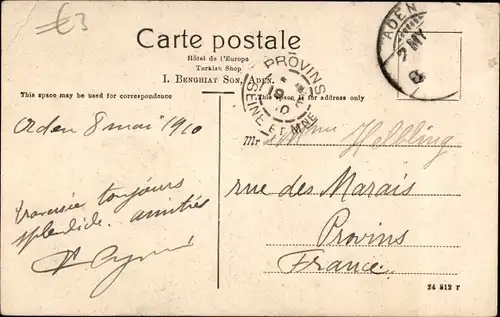 £3
Carte postale
Hôtel de l'Europe
Turkish Shop
I. Benghiat Son, Aden.
This space may be used for correspondence
This space is for address only.
ADEN
PROVINS
SEINE ET MNE
Aden 8 mai 1910
traversée toujours
splendide. amitiés
Mr Mme Helbling
rue des Marais
Provins
France
24 812 T